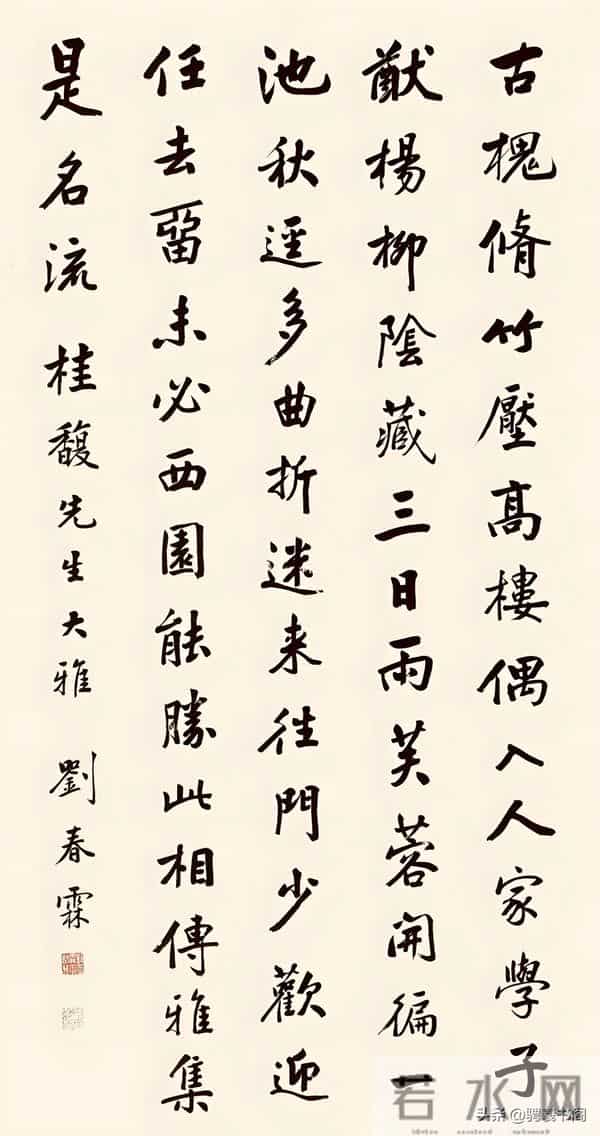 古槐脩竹壓高樓偶入人家學子
猷楊柳陰藏三日雨芙蓉開徧一
池秋逕多曲折迷来往門少歡迎
任去畱未必西園能勝此相傳雅集
是名流 桂馥先生大雅 劉春霖
若水网
头条 @书阁